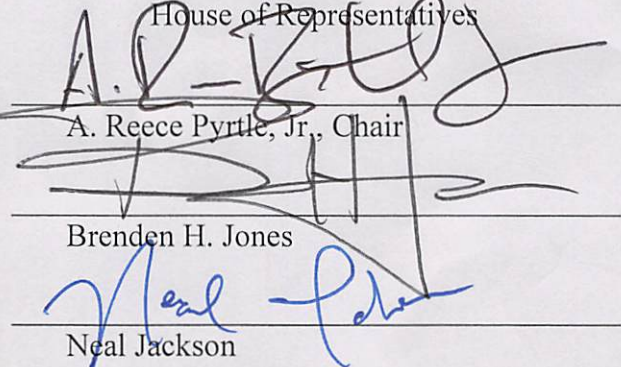 House of Representatives
A. Reece Pyrtle, Jr., Chair
Brenden H. Jones
Neal Jackson